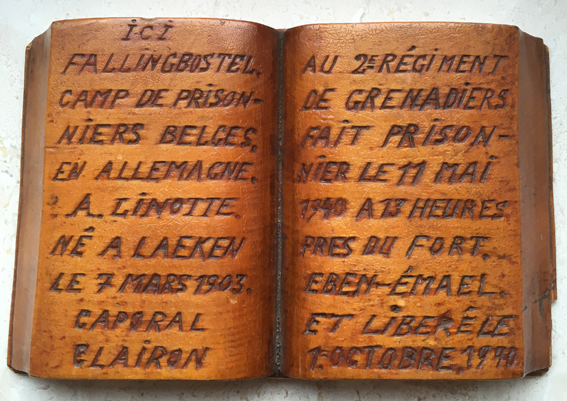 ICI
FALLINGBOSTEL.
CAMP DE PRISON-
NIERS BELGES,
EN ALLEMAGNE.
A. LINOTTE
NÊ A LAEKEN
LE 7 MARS 1903.
CAPORAL
CLAIRON
AU 2E RÉGIMENT
DE GRENADIERS
FAIT PRISON-
NIER LE 11 MAI
1940 A 13 HEURES
PRES DU FORT.
EBEN-ÉMAEL.
ET LIBERÊ LE
1. OCTOBRE. 1940